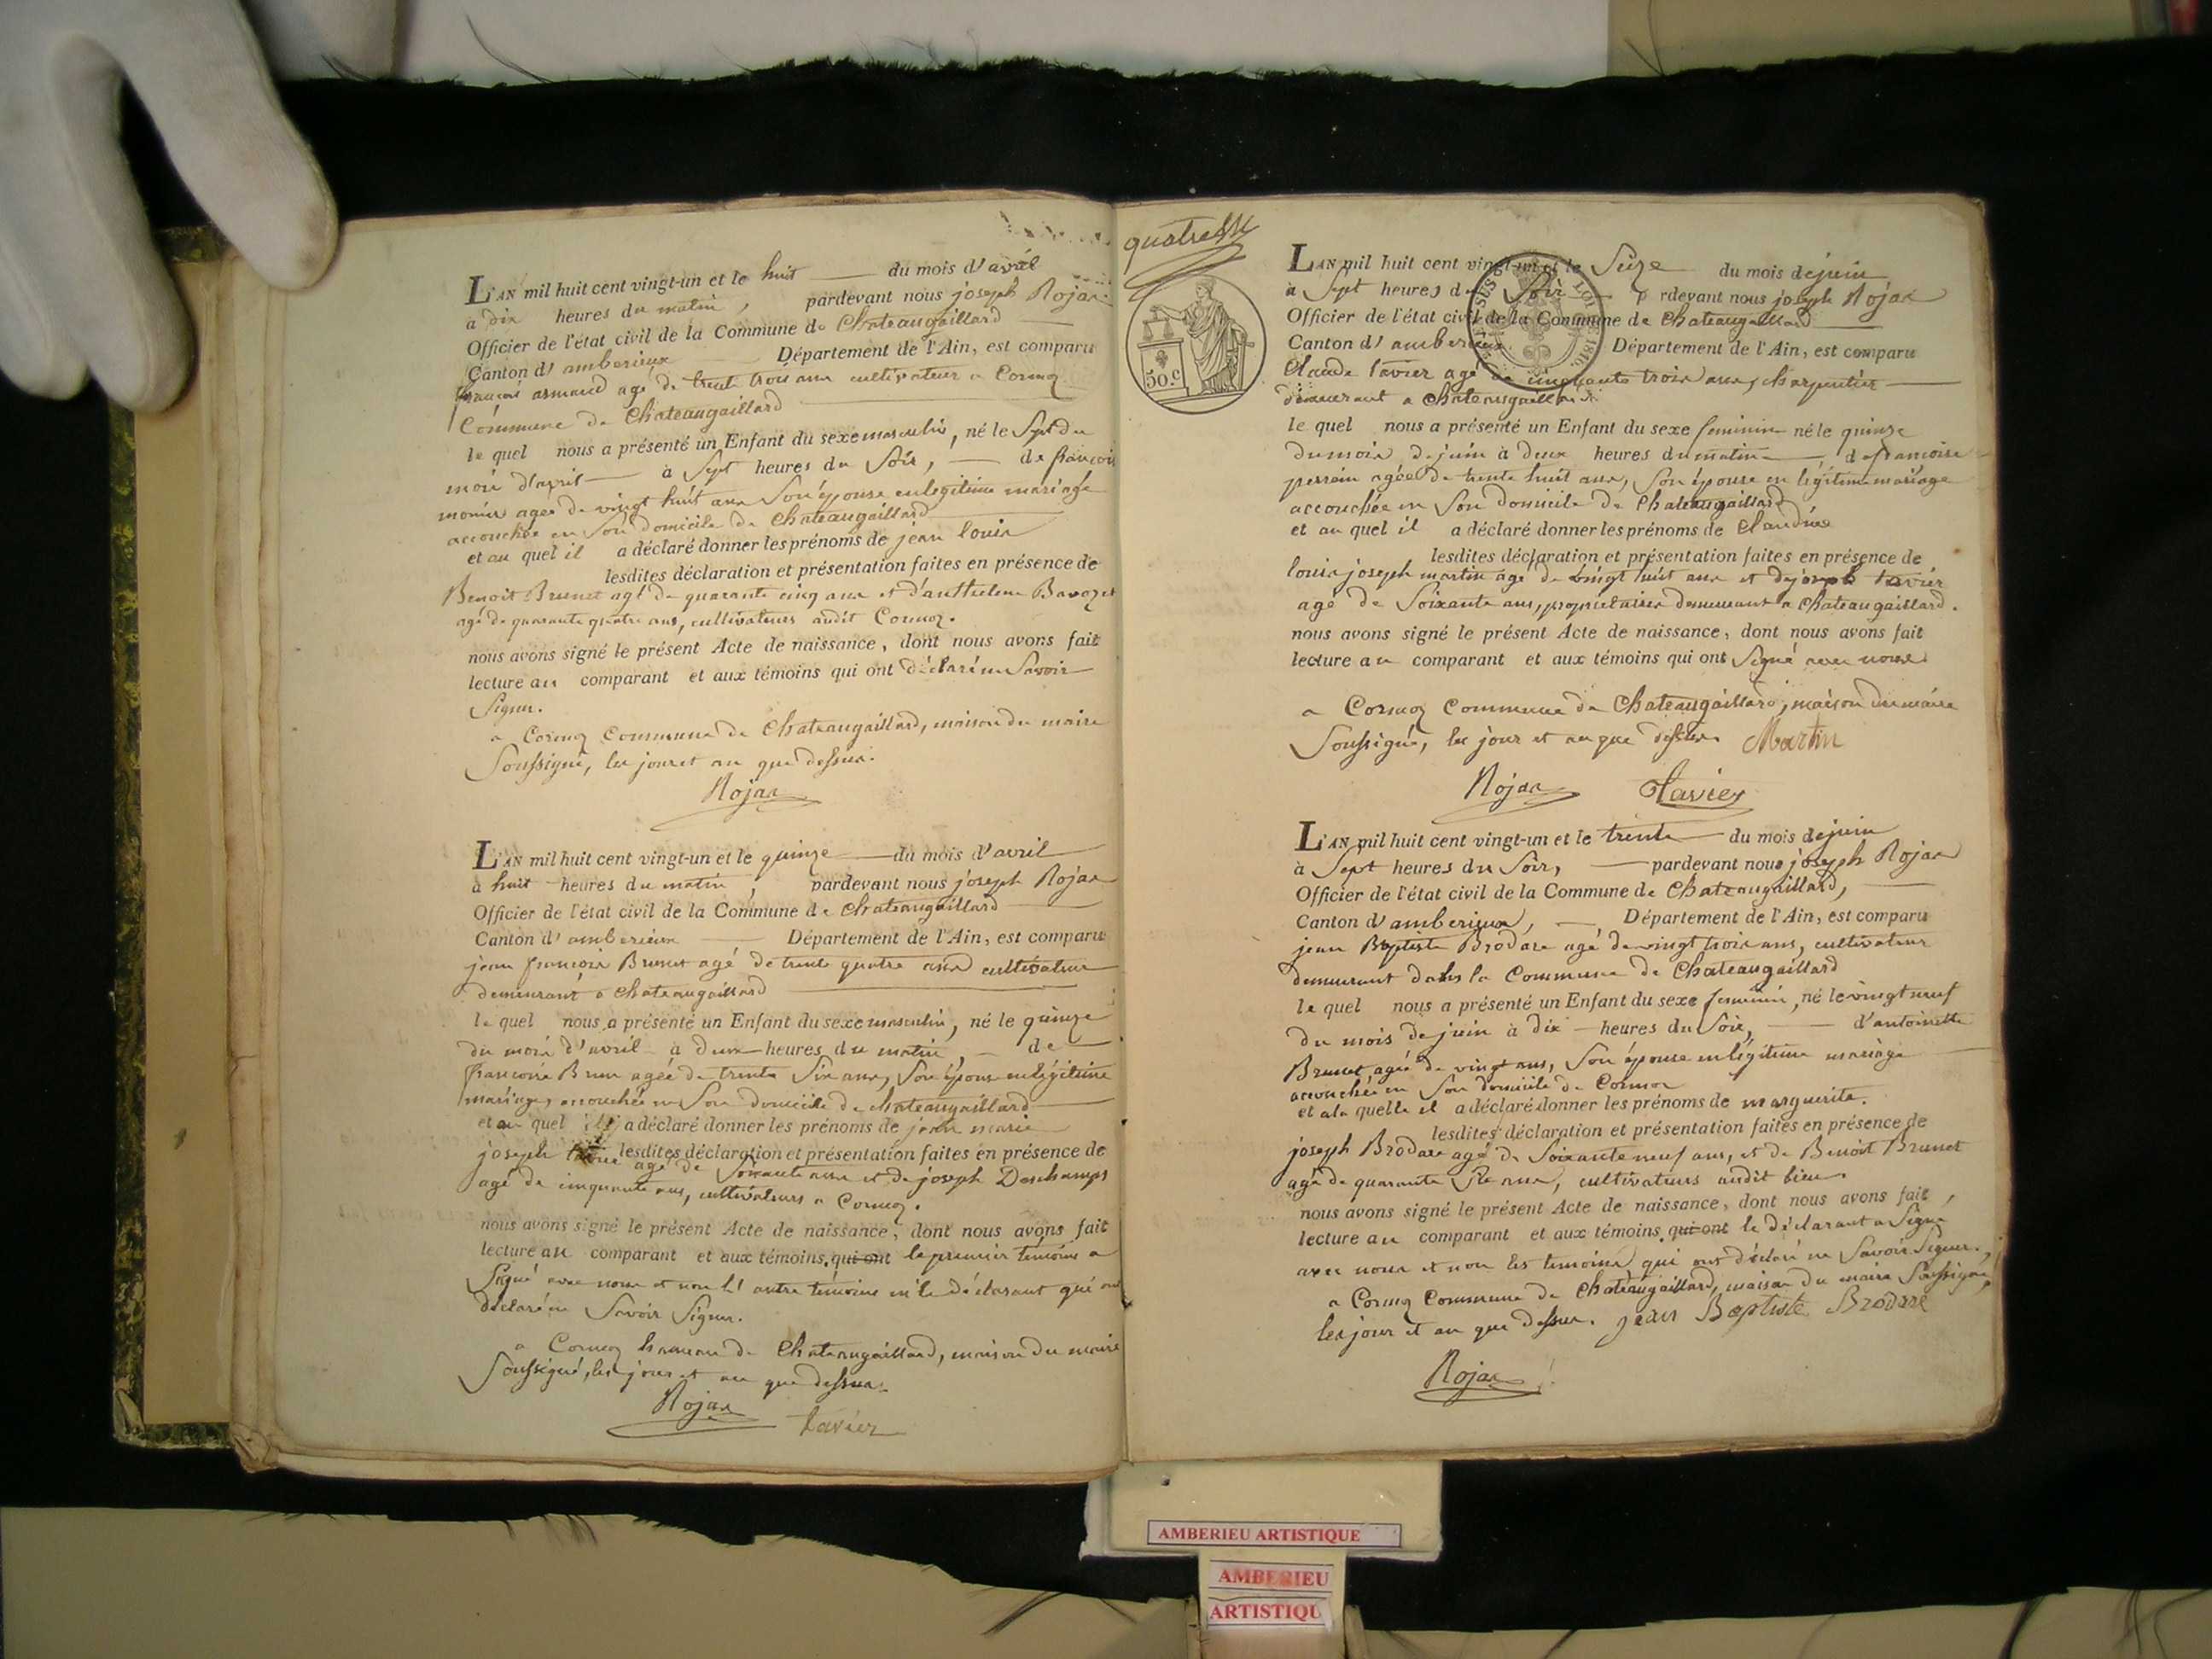 L'AN mil huit cent vingt-un et le huit du mois d'avril
à dix heures du matin, pardevant nous joseph Rojar
Officier de l'état civil de la Commune de Chateaugaillard
Canton d'amberieux Département de l'Ain, est comparu
françois armand agé de trente trois ans cultivateur a Cormoz
Commune de Chateaugaillard
le quel nous a présenté un Enfant du sexe masculin, né le Sept du
mois d'avril à Sept heures du Soir, de françoise
monier agée de vingt huit ans Son épouse en legitime mariage
accouchée en Son domicile de Chateaugaillard
et au quel il a déclaré donner les prénoms de jean louis
lesdites déclaration et présentation faites en présence de
Benoit Brunet agé de quarante cinq ans et d'anthelme Bavozet
agé de quarante quatre ans, cultivateurs audit Cormoz.
nous avons signé le présent Acte de naissance, dont nous avons fait
lecture au comparant et aux témoins qui ont déclaré ne Savoir
Signer.
a Cormoz Commune de Chateaugaillard, maison du maire
Soussigné, les jour et an que dessus.
Rojar
L'AN mil huit cent vingt-un et le quinze du mois d'avril
à huit heures du matin, pardevant nous joseph Rojar
Officier de l'état civil de la Commune de Chateaugaillard
Canton d'amberieux Département de l'Ain, est comparu
jean françois Brunet agé de trente quatre ans cultivateur
demeurant a Chateaugaillard
le quel nous a présenté un Enfant du sexe masculin, né le quinze
du mois d'avril à deux heures du matin, de
françoise Brun agée de trente Six ans, Son épouse en légitime
mariage, accouchée en Son domicile de chateaugaillard
et au quel il a déclaré donner les prénoms de jean marie
lesdites déclaration et présentation faites en présence de
joseph tavier agé de Soixante ans et de joseph Deschamps
agé de cinquante ans, cultivateurs a Cormoz.
nous avons signé le présent Acte de naissance, dont nous avons fait
lecture au comparant et aux témoins. qui ont le premier témoins a
Signé avec nous et non l'autre témoins ni le déclarant qui ont
déclaré ne Savoir Signer.
a Cormoz hameau de Chateaugaillard, maison du maire
Soussigné, les jour et an que dessus.
Rojar tavier
quatre
50.c
LOI 1816
L'AN mil huit cent vingt-un et le Seize du mois de juin
à Sept heures du Soir pardevant nous joseph Rojar
Officier de l'état civil de la Commune de Chateaugaillard
Canton d'amberieux Département de l'Ain, est comparu
Claude tavier agé de cinquante trois ans, charpentier
demeurant a Chateaugaillard
le quel nous a présenté un Enfant du sexe feminin né le quinze
du mois de juin à deux heures du matin de françoise
perrin agée de trente huit ans, Son épouse en légitime mariage
accouchée en Son domicile de Chateaugaillard
et au quel il a déclaré donner les prénoms de Claudine
lesdites déclaration et présentation faites en présence de
louis joseph martin agé de vingt huit ans et de joseph tavier
agé de Soixante ans, propriétaires demeurant a Chateaugaillard.
nous avons signé le présent Acte de naissance, dont nous avons fait
lecture au comparant et aux témoins qui ont Signé avec nous
a Cormoz Commune de Chateaugaillard, maison du maire
Soussigné, les jour et an que dessus. Martin
Rojar Tavier
L'AN mil huit cent vingt-un et le trente du mois de juin
à Sept heures du Soir, pardevant nous joseph Rojar
Officier de l'état civil de la Commune de Chateaugaillard,
Canton d'amberieux, Département de l'Ain, est comparu
jean Baptiste Brodare agé de vingt trois ans, cultivateur
demeurant dans la Commune de Chateaugaillard
le quel nous a présenté un Enfant du sexe feminin, né le vingt neuf
du mois de juin à dix heures du Soir, d'antoinette
Brunet agée de vingt ans, Son épouse en légitime mariage
accouchée en Son domicile de Cormoz
et ala quelle il a déclaré donner les prénoms de marguerite.
lesdites déclaration et présentation faites en présence de
joseph Brodare agé de Soixante neuf ans, et de Benoit Brunet
agé de quarante ans, cultivateurs audit lieu.
nous avons signé le présent Acte de naissance, dont nous avons fait
lecture au comparant et aux témoins. qui ont le déclarant a Signé
avec nous et non les temoins qui ont déclaré ne Savoir Signer.,
a Cormoz Commune de Chateaugaillard, maison du maire Soussigné,
les jour et an que dessus. jean Baptiste Brodare
Rojar
AMBERIEU ARTISTIQUE
AMBERIEU
ARTISTIQU